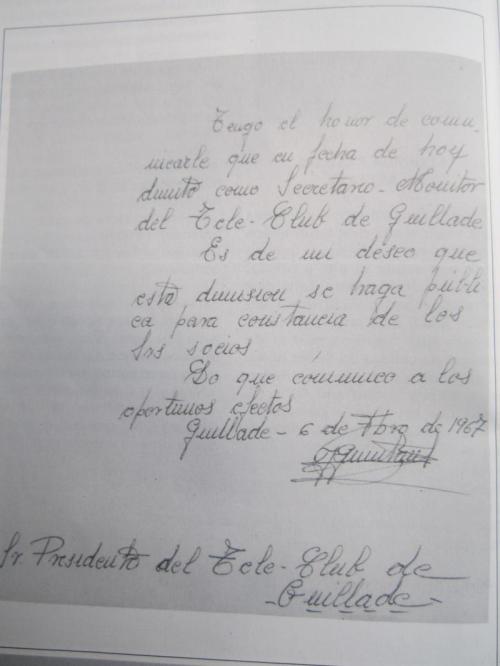 Tengo el honor de comu-
nicarle que en fecha de hoy
dimito como Secretario-Monitor
del Tele-Club de Guillade
Es de mi deseo que
esta dimision se haga públi
ca para constancia de los
Srs socios
Lo que comunico a los
oportunos efectos
Guillade - 6 de Fbro de 1967
Sr. Presidente del Tele-Club de
- Guillade -